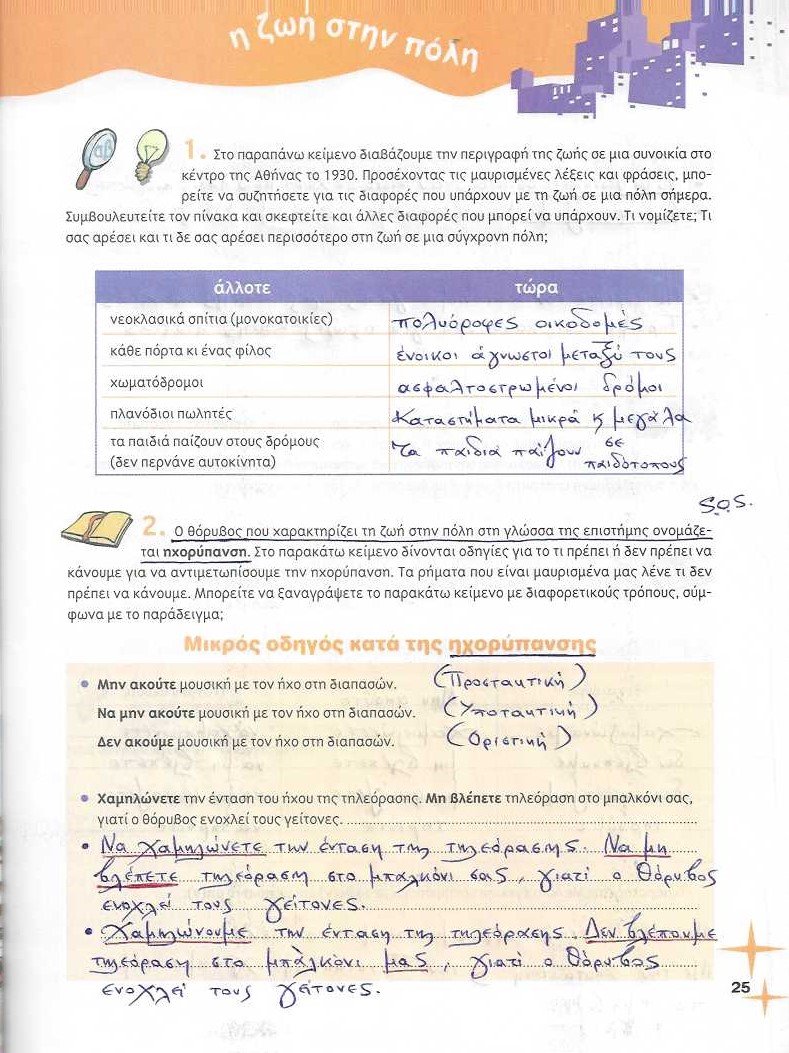 η ζωή στην πόλη
1. Στο παραπάνω κείμενο διαβάζουμε την περιγραφή της ζωής σε μια συνοικία στο
κέντρο της Αθήνας το 1930. Προσέχοντας τις μαυρισμένες λέξεις και φράσεις, μπο-
ρείτε να συζητήσετε για τις διαφορές που υπάρχουν με τη ζωή σε μια πόλη σήμερα.
Συμβουλευτείτε τον πίνακα και σκεφτείτε και άλλες διαφορές που μπορεί να υπάρχουν. Τι νομίζετε; Τι
σας αρέσει και τι δε σας αρέσει περισσότερο στη ζωή σε μια σύγχρονη πόλη;
άλλοτε τώρα
νεοκλασικά σπίτια (μονοκατοικίες) πολυόροφες οικοδομές
κάθε πόρτα κι ένας φίλος ένοικοι άγνωστοι μεταξύ τους
χωματόδρομοι ασφαλτοστρωμένοι δρόμοι
πλανόδιοι πωλητές Καταστήματα μικρά ϗ μεγάλα
τα παιδιά παίζουν στους δρόμους Τα παιδιά παίζουν σε
(δεν περνάνε αυτοκίνητα) παιδότοπους
S.O.S.
2. Ο θόρυβος που χαρακτηρίζει τη ζωή στην πόλη στη γλώσσα της επιστήμης ονομάζε-
ται ηχορύπανση. Στο παρακάτω κείμενο δίνονται οδηγίες για το τι πρέπει ή δεν πρέπει να
κάνουμε για να αντιμετωπίσουμε την ηχορύπανση. Τα ρήματα που είναι μαυρισμένα μας λένε τι δεν
πρέπει να κάνουμε. Μπορείτε να ξαναγράψετε το παρακάτω κείμενο με διαφορετικούς τρόπους, σύμ-
φωνα με το παράδειγμα;
Μικρός οδηγός κατά της ηχορύπανσης
• Μην ακούτε μουσική με τον ήχο στη διαπασών. (Προστακτική)
Να μην ακούτε μουσική με τον ήχο στη διαπασών. (Υποτακτική)
Δεν ακούμε μουσική με τον ήχο στη διαπασών. (Οριστική)
• Χαμηλώνετε την ένταση του ήχου της τηλεόρασης. Μη βλέπετε τηλεόραση στο μπαλκόνι σας,
γιατί ο θόρυβος ενοχλεί τους γείτονες.
• Να χαμηλώνετε την ένταση της τηλεόρασης. Να μη
βλέπετε τηλεόραση στο μπαλκόνι σας, γιατί ο θόρυβος
ενοχλεί τους γείτονες.
• Χαμηλώνουμε την ένταση της τηλεόρασης. Δεν βλέπουμε
τηλεόραση στο μπαλκόνι μας, γιατί ο θόρυβος
ενοχλεί τους γείτονες.
25